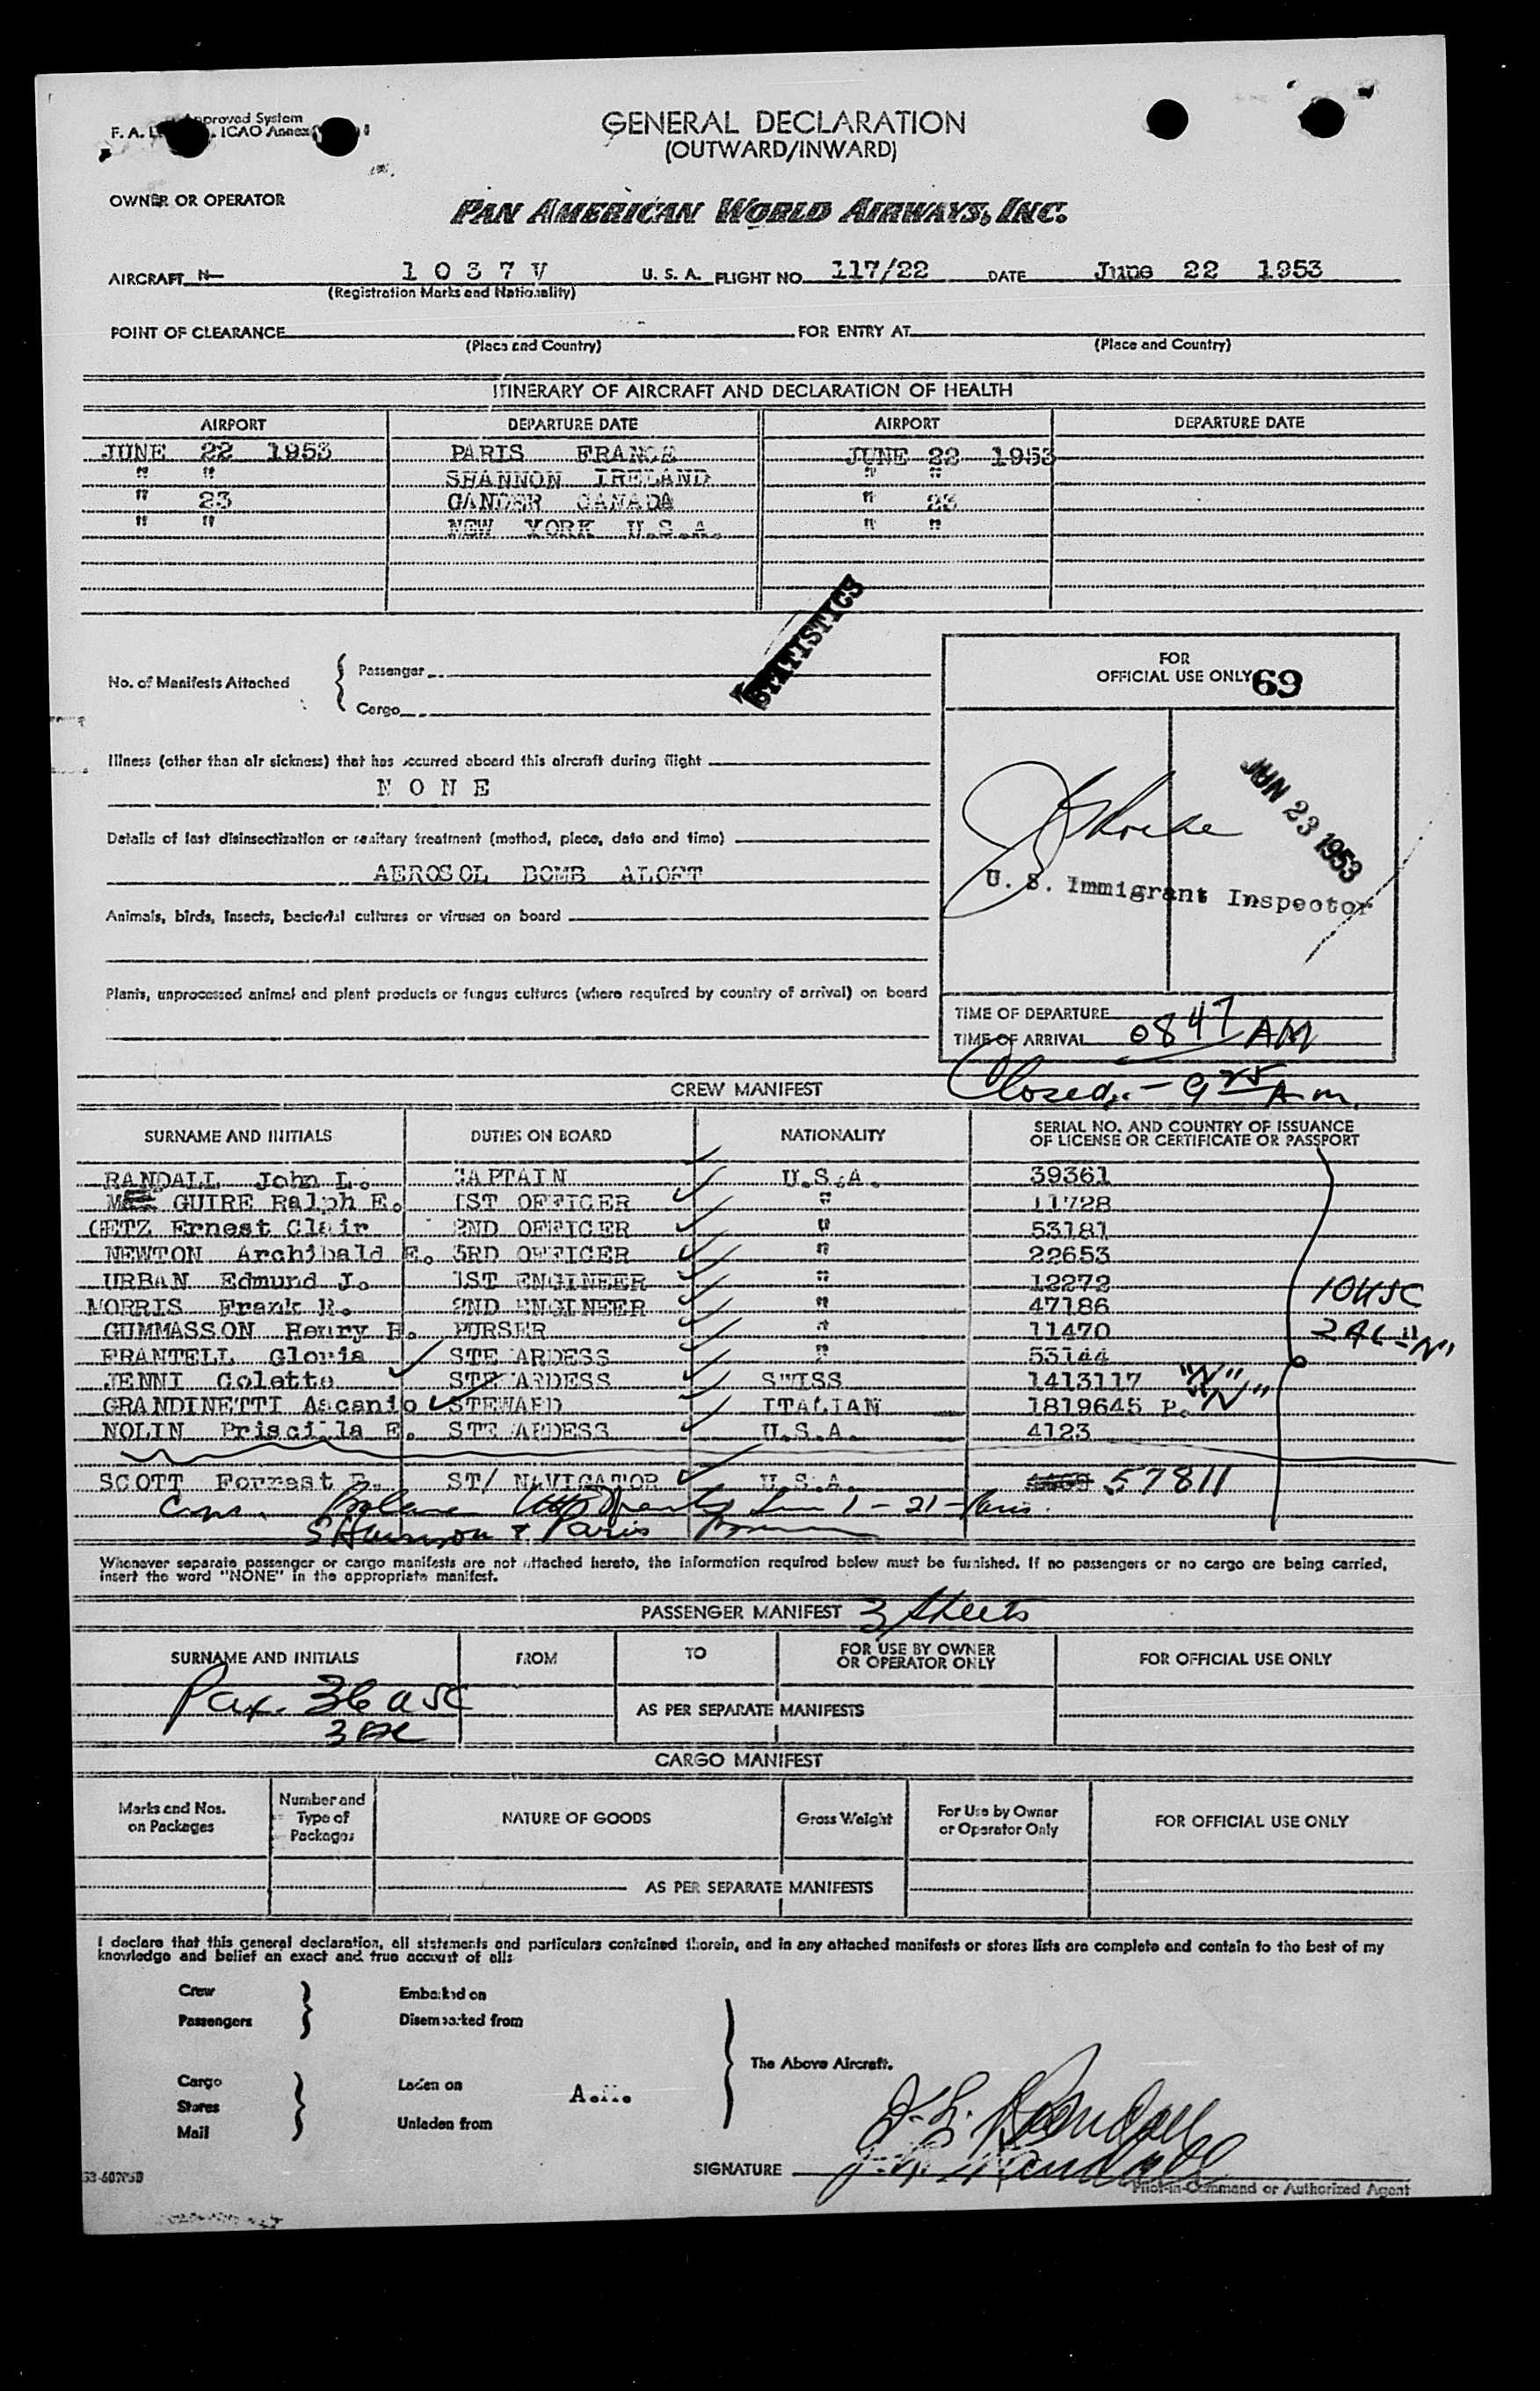 Approved System
F. A. ICAO Annex
GENERAL DECLARATION
(OUTWARD/INWARD)
OWNER OR OPERATOR
PAN AMERICAN WORLD AIRWAYS, INC.
AIRCRAFT N 1 0 3 7 V U. S. A. FLIGHT NO. 117/22 DATE June 22 1953
(Registration Marks and Nationality)
POINT OF CLEARANCE FOR ENTRY AT
(Place and Country) (Place and Country)
ITINERARY OF AIRCRAFT AND DECLARATION OF HEALTH
AIRPORT DEPARTURE DATE AIRPORT DEPARTURE DATE
JUNE 22 1953 PARIS FRANCE JUNE 22 1953
" " SHANNON IRELAND " "
" 23 GANDER CANADA " 23
" " NEW YORK U.S.A. " "
STATISTICS
No. of Manifests Attached { Passenger
Cargo
FOR
OFFICIAL USE ONLY 69
Illness (other than air sickness) that has occurred aboard this aircraft during flight
N O N E
Details of last disinsectization or sanitary treatment (method, place, date and time)
AEROSOL BOMB ALOFT
Animals, birds, insects, bacterial cultures or viruses on board
Plants, unprocessed animal and plant products or fungus cultures (where required by country of arrival) on board
JUN 23 1953
U. S. Immigrant Inspector
TIME OF DEPARTURE
TIME OF ARRIVAL 0847 AM
Closed - 9 25 A.m.
CREW MANIFEST
SURNAME AND INITIALS DUTIES ON BOARD NATIONALITY SERIAL NO. AND COUNTRY OF ISSUANCE
OF LICENSE OR CERTIFICATE OR PASSPORT
RANDALL John L. CAPTAIN U.S.A. 39361
GUIRE Ralph E. 1ST OFFICER " 11728
GETZ Ernest Clair 2ND OFFICER " 53181
NEWTON Archibald E. 3RD OFFICER " 22653
URBAN Edmund J. 1ST ENGINEER " 12272
MORRIS Frank R. 2ND ENGINEER " 47186 10 USC
GUMMASSON Henry B. PURSER " 11470 2 AL "N"
FRANTELL Gloria STEWARDESS " 53144
JENNI Colette STEWARDESS SWISS 1413117 "N"
GRANDINETTI Ascanio STEWARD ITALIAN 1819645 P. "N"
NOLIN Priscilla E. STEWARDESS U.S.A. 4123
SCOTT Forrest ST/ NAVIGATOR U.S.A. 57811
1 - 21 - Paris.
Shannon & Paris
Whenever separate passenger or cargo manifests are not attached hereto, the information required below must be furnished. If no passengers or no cargo are being carried,
insert the word "NONE" in the appropriate manifest.
PASSENGER MANIFEST 3 sheets
SURNAME AND INITIALS FROM TO FOR USE BY OWNER
OR OPERATOR ONLY FOR OFFICIAL USE ONLY
Pax. 36 USC
AS PER SEPARATE MANIFESTS
CARGO MANIFEST
Marks and Nos.
on Packages Number and
Type of
Packages NATURE OF GOODS Gross Weight For Use by Owner
or Operator Only FOR OFFICIAL USE ONLY
AS PER SEPARATE MANIFESTS
I declare that this general declaration, all statements and particulars contained therein, and in any attached manifests or stores lists are complete and contain to the best of my
knowledge and belief an exact and true account of all:
Crew Embarked on
Passengers Disembarked from
The Above Aircraft.
Cargo Laden on
Stores
Mail Unladen from
J. L. Randall
SIGNATURE J. L. Randall
Pilot-in-Command or Authorized Agent